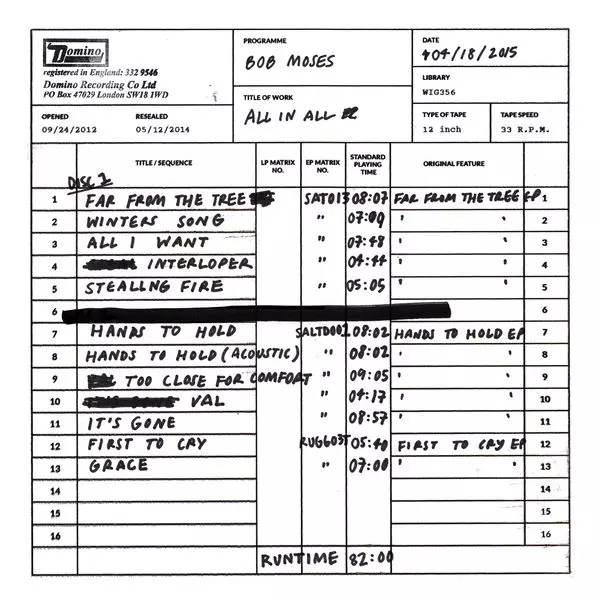 Domino
registered in England: 332 9546
Domino Recording Co Ltd
PO Box 47029 London SW18 1WD
PROGRAMME
BOB MOSES
DATE
404/18/2015
LIBRARY
WIG356
TITLE OF WORK
ALL IN ALL
OPENED
09/24/2012
RESEALED
05/12/2014
TYPE OF TAPE
12 inch
TAPE SPEED
33 R.P.M.
TITLE / SEQUENCE LP MATRIX NO. EP MATRIX NO. STANDARD PLAYING TIME ORIGINAL FEATURE
DISC 1
1 FAR FROM THE TREE SAT013 08:07 FAR FROM THE TREE EP 1
2 WINTERS SONG " 07:00 ' ' 2
3 ALL I WANT " 07:48 ' ' 3
4 INTERLOPER " 04:44 ' ' 4
5 STEALING FIRE " 05:05 ' ' 5
6 6
7 HANDS TO HOLD SALTD001 08:02 HANDS TO HOLD EP 7
8 HANDS TO HOLD (ACOUSTIC) " 08:02 ' ' 8
9 TOO CLOSE FOR COMFORT " 09:05 ' ' 9
10 VAL " 04:17 ' ' 10
11 IT'S GONE " 08:57 ' ' 11
12 FIRST TO CRY 05:40 FIRST TO CRY EP 12
13 GRACE " 07:00 ' ' 13
14 14
15 15
16 16
RUNTIME 82:00